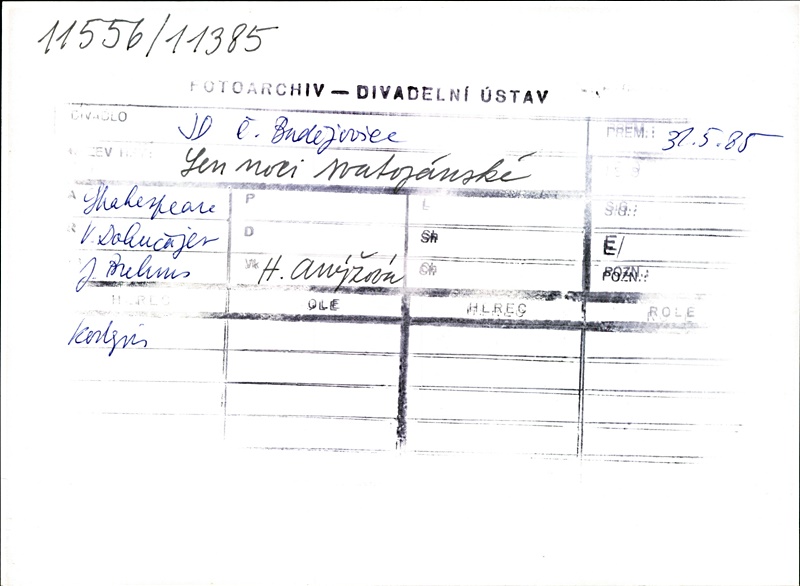 11556/11385
FOTOARCHIV – DIVADELNÍ ÚSTAV
DIVADLO JD Č. Budějovice PREM.: 31.5.85
NÁZEV HRY: Sen noci svatojánské
A Shakespeare P L SIG.:
R D Sh E/
J. Brehms Vk H. Anýžová Ch POZN.:
HEREC ROLE HEREC ROLE